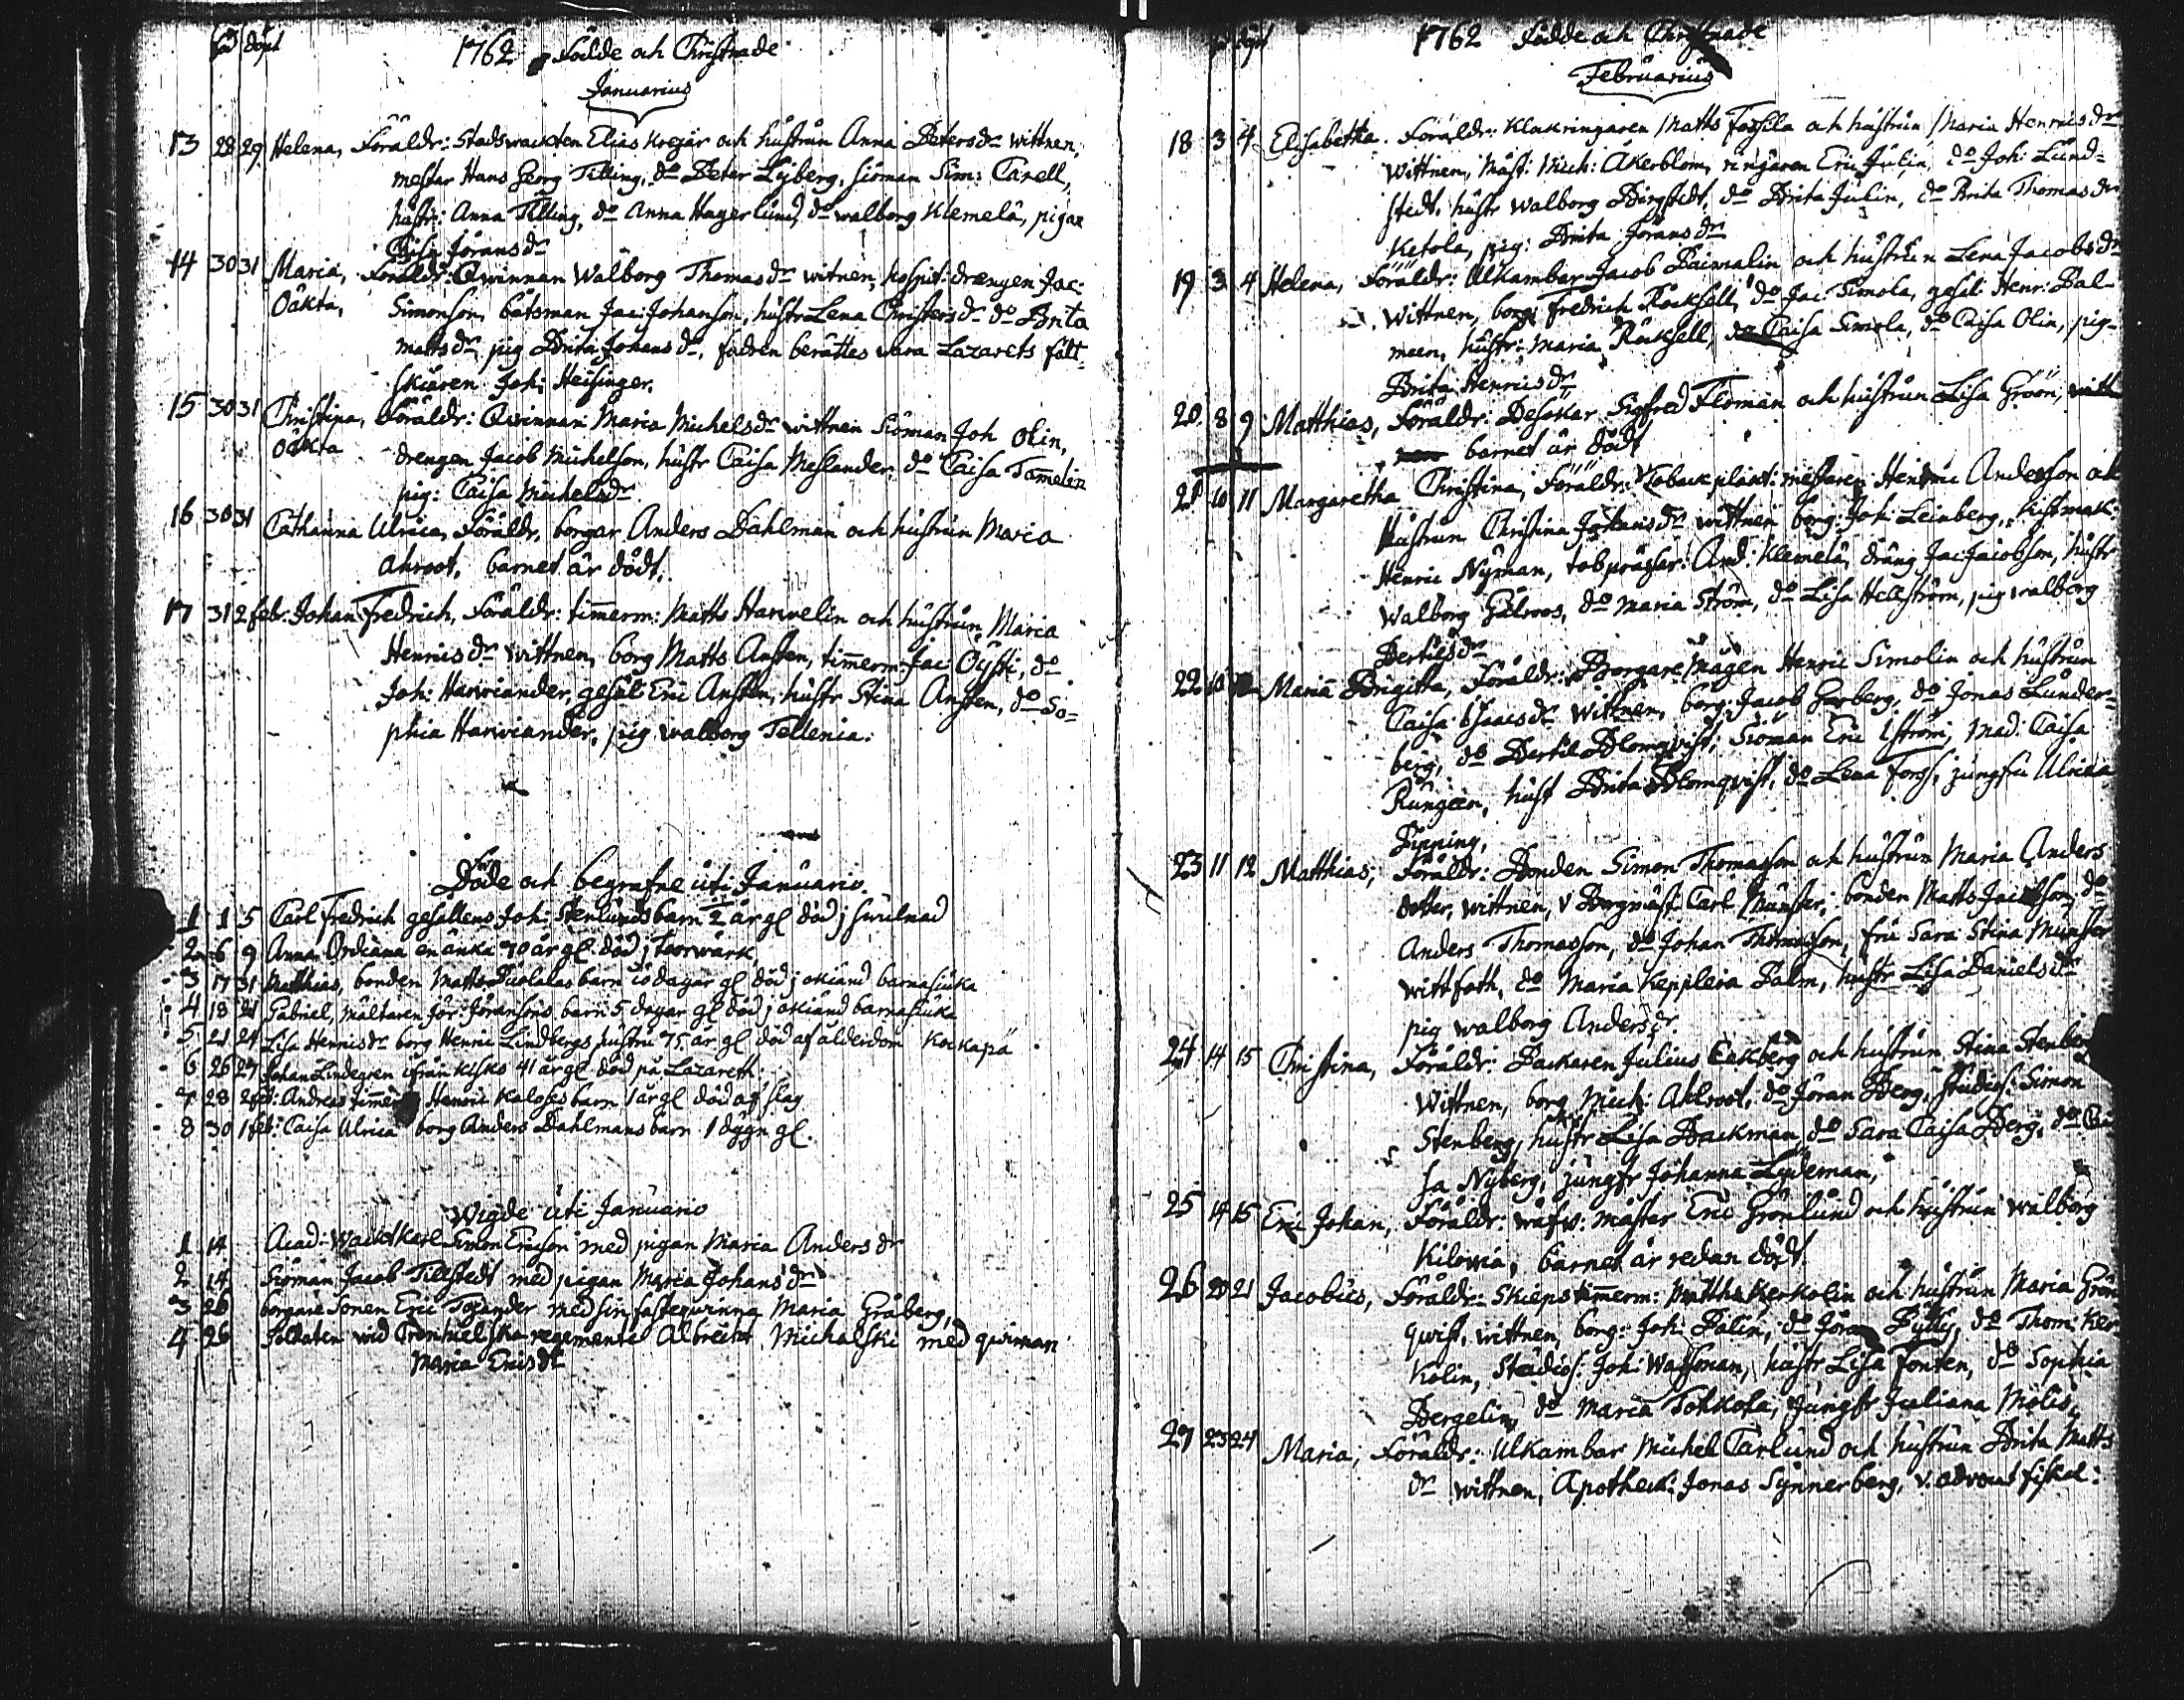 föd döpt 1762 Födde och Christnade
Januarius
13 28 29 Helena, Föräldr: Stadswackten Elias Krogär och hustrun Anna Petersdr wittnen,
mestar Hans Georg Tilling, do Peter Lyberg, siöman Sim: Carell,
hustr: Anna Tilling, do Anna Hagerlund, do walborg Klemelä, pigar
Caisa Jöransdr
14 30 31 Maria, Föräldr: Qwinnan Walborg Thomasdr witnen, hospit: drængen Jac:
Oäkta, Simonson, båtsman Jac: Johanson, hustr Lena Christersdr do Brita
Mattsdr pig Brita Johansdr, fadren berättes wara Lazarets fält
skiären Joh: Heisinger.
15 30 31 Christina, Föräldr: Qwinnan Maria Michelsdr wittnen Siöman Joh Olin,
Oäkta drengen Jacob Michelson, hustr Caisa Meslander do Caisa Tamelin
pig: Caisa Michelsdr
16 30 31 Catharina Ulrica, Föräldr, borgar Anders Dahlman och hustrun Maria
Ahroot, barnet är dödt.
17 31 2 febr. Johan Fredrich, Föräldr: timerm: Matts Harwelin och hustrun Maria
Henricsdr wittnen, borg Matts Ansten, timerm Jac Öysti, do
Joh: Harviander, gesäl Eric Ansten, hustr Stina Ansten, do So=
phia Harviander, pig walborg Tellenia.
Döde och begrafne uti Januario.
1 1 5 Carl Fredrich gesällens Joh: Stenlunds barn 1/2 år gl död j swulnad
2 6 9 Anna Ordiana en änka 70 år gl död j torrwärk,
3 17 31 Matthias, bonden Matts barn dagar gl död j okiänd barnasiuka
4 18 21 Gabriel, mältaren Jör: Jöransons barn 5 dagar gl död j okiänd barnasiuka
5 21 24 Lisa Henricsdr borg Henric Lindbergs hustru 75 år gl död af ålderdom Kockapä
6 26 27 Johan Lindegren ifrån Kisko 41 år gl död på Lazareth.
7 28 2 feb: Andreas timer Henric Kaloses barn 1 år gl död af slag
8 30 1 feb: Caisa Ulrica borg Anders Dahlmans barn 1 dygn gl.
Wigde uti Januario
1 14 Acad: Wacktkarl Simon Ericson med pigan Maria Andersdr
2 14 Siöman Jacob Tillstedt med pigan Maria Johansdr
3 26 borgare Sonen Eric Tojander med sin fästeqwinna Maria Gråberg,
4 26 Soldaten wid regemente Albrecht Michalski med qwinnan
Maria Ericsdr
föd döpt 1762 Födde och Christnade
Februarius
18 3 4 Elisabetha. Föräldr: Klakringaren Matts Fassila och hustrun Maria Henricsdr
Wittnen, Mäst: Mich: Åkerblom, ringaren Eric Julin, do Joh: Lund=
stedt, hustr walborg Bergstedt, do Brita Julin, do Brita Thomasdr
Ketola, pig: Brita Jöransdr
19 3 4 Helena, Föräldr: Ulkambar Jacob Paimalin och hustrun Lena Jacobsdr
Wittnen, borg: Fredrich Röcksell, do Jac: Simola, gesel: Henr: Pal-
meen, hustr: Maria Röcksell, do Caisa Simola, do Caisa Olin, pig-
Brita Henricsdr
20 8 9 Matthias, Föräldr: Besökar Sigfred Floman och hustrun Lisa Gröön, witt
nen barnet är dödt
21 10 11 Margaretha Christina, Föräldr: Toback plant: mestaren Henric Anderson och
hustrun Christina Johansdr wittnen borg: Joh: Leinberg, hatmak:
Henric Nyman, tob prässar: And: Klemelä, dräng Jac: Jacobson, hustr
Walborg Gälroos, do Maria Ström, do Lisa Hellström, pig walborg
Bertilsdr
22 10 12 Maria Brigitta, Föräldr: Borgare Mågen Henric Simolin och hustrun
Caisa Isaacsdr wittnen, borg: Jacob Garberg, do Jonas Lunder-
berg, do Bertil Blomqvist, Siöman Eric Iström, Mad: Caisa
Rungeen, hust Brita Blomqvist, do Lena Forss, jungfru Ulrica
Pipping,
23 11 12 Matthias, Föräldr: Bonden Simon Thomasson och hustrun Maria Anders
dotter, wittnen, V Borgmäst: Carl Munster, bonden Matts Jacobson, do
Anders Thomasson, do Johan Thomasson, fru Sara Stina Munster
Wittfoth, do Maria Keppleria Palm, hustr Lisa Danielsdr
pig walborg Andersdr.
24 14 15 Christina, Föräldr: Backaren Julius Eekberg och hustrun Stina Stenberg
Wittnen, borg Mich: Ahlroot, do Jöran Berg, Studios: Simon
Stenberg, hustr Lisa Backman, do Sara Caisa Berg, do Cai
sa Nyberg, jungfr Johanna Lydeman,
25 14 15 Eric Johan, Föräldr: wäfw: mästar Eric Grönlund och hustrun walborg
Kilowia, barnet är redan dödt
26 20 21 Jacobus, Föräldr: Skieps timerm: Matths Kerkolin och hustrun Maria Grön
qwist, wittnen, borg: Joh: Palin, do Jöran Pykky, do Thom: Ker
kolin, Studios: Joh: Wassman, hustr Lisa Fonten, do Sophia
Bergelin, do Maria Tohkola, Jungfr Juliana Molis,
27 23 24 Maria, Föräldr: Ulkambar Michel Carlund och hustrun Brita Matts
dr wittnen, Apothek: Jonas Synnerberg, v. advocat fiskal: